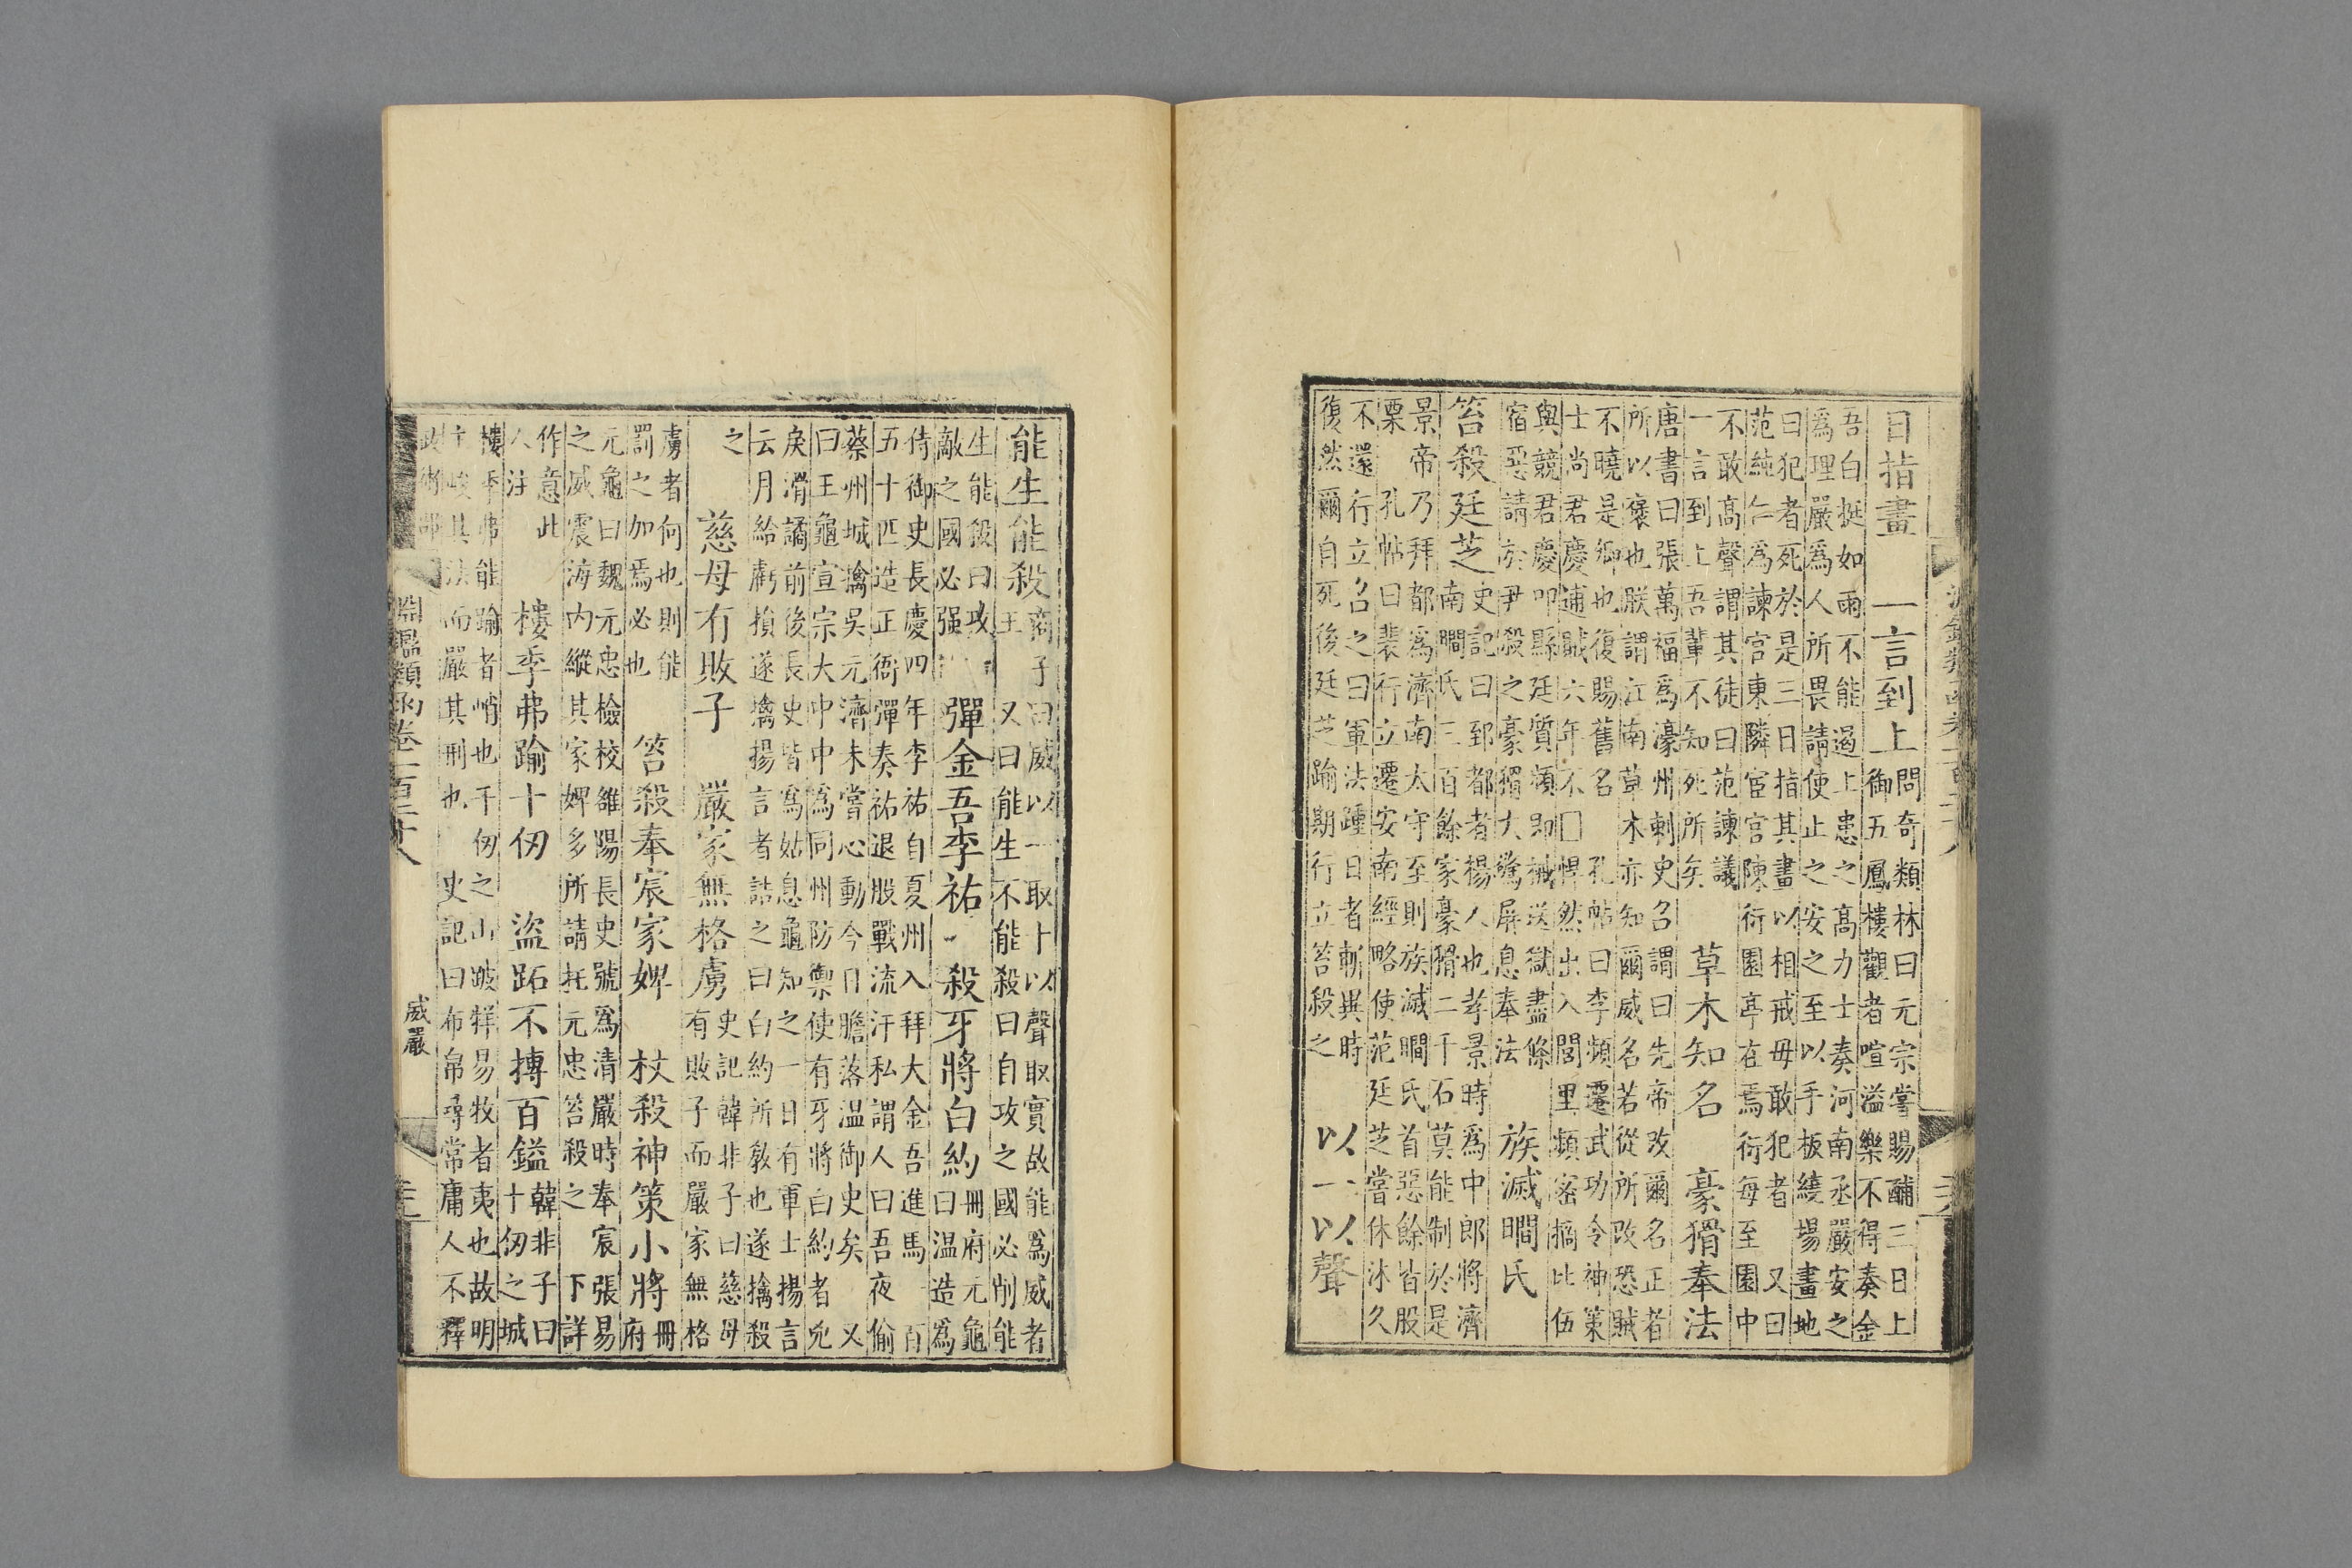 日指畫　一言到上
問奇類林曰元宗嘗賜酺三日上
御五鳳樓觀者喧溢樂不得奏金
吾白挺如雨不能遏上患之髙力士奏河南丞嚴安之
為理嚴為人所畏請使止之安之至以手板繞場畫地
曰犯者死於是三日指其畫以相戒毋敢犯者　又曰
范純仁為諫官東隣宦官陳衍園亭在焉衍每至園中
不敢髙聲謂其徒曰范諫議
一言到上吾輩不知死所矣
草木知名　豪猾奉法
唐書曰張萬福為濠州刺史召謂曰先帝改爾名正者
所以褒也朕謂江南草木亦知爾威名若從所改恐賊
不曉是卿也復賜舊名　孔帖曰李頻遷武功令神策
士尚君慶逋賦六年不□悍然出入閭里頻密摘比伍
與競君慶叩縣廷質頻即械送獄盡條
宿惡請於尹殺之豪猾大驚屏息奉法
族滅瞷氏
笞殺廷芝
史記曰郅都者楊人也孝景時為中郎將濟
南瞷氏三百餘家豪猾二千石莫能制於是
景帝乃拜都為濟南太守至則族滅瞷氏首惡餘皆股
栗　孔帖曰裴行立遷安南經略使范廷芝嘗休沐久
不還行立召之曰軍法踵日者斬異時
復然爾自死後廷芝踰期行立笞殺之
以一以聲
能生能殺
商子曰威以一取十以聲取實故能為威者
王　又曰能生不能殺曰自攻之國必削能
生能殺曰攻
敵之國必强
彈金吾李祐　殺牙將白約
冊府元龜
曰温造為
侍御史長慶四年李祐自夏州入拜大金吾進馬一百
五十匹造正衙彈奏祐退股戰流汗私謂人曰吾夜偷
蔡州城擒吳元濟未嘗心動今日膽落温御史矣　又
曰王龜宣宗大中中為同州防禦使有牙將白約者兇
戾滑譎前後長史皆為姑息龜知之一日有軍士揚言
云月給虧損遂擒揚言者詰之曰白約所敎也遂擒殺
之
慈母有敗子　嚴家無格虜
史記韓非子曰慈母
有敗子而嚴家無格
虜者何也則能
罰之加焉必也
笞殺奉宸家婢　杖殺神策小將
冊
府
元龜曰魏元忠檢校雒陽長史號為清嚴時奉宸張易
之威震海内縱其家婢多所請托元忠笞殺之　下詳
作意此
人注
樓季弗踰十仞　盜跖不摶百鎰
韓非子曰
十仞之城
樓季弗能踰者峭也千仞之山跛牂易牧者夷也故明
主峻其法而嚴其刑也　史記曰布帛尋常庸人不釋
淵鑑類函卷一百二十八
威嚴